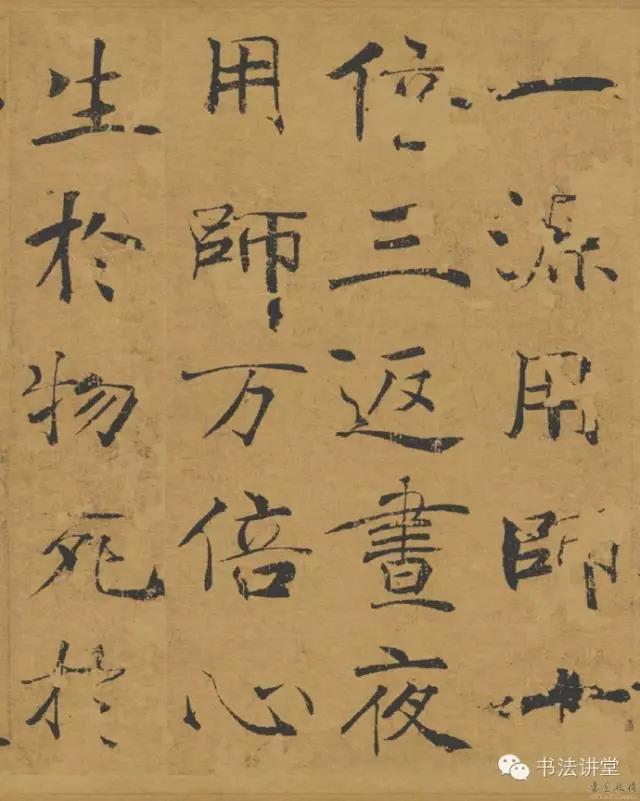 一源用師十
倍三返晝夜
用師万倍心
生於物死於
书法讲堂